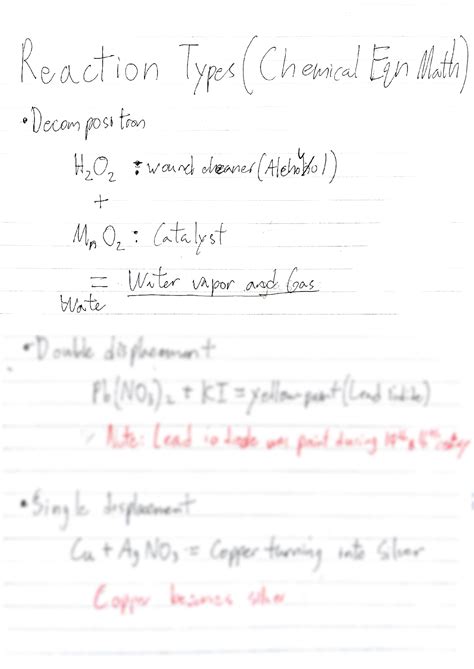 Reaction Types (Chemical Eqn Math)
• Decomposition
H₂O₂ : wound cleaner (Alcohol)
+
MnO₂ : Catalyst
= Water vapor and Gas
Wate
• Double displacement
Pb(NO₃)₂ + KI = yellow paint (Lead Iodide)
Note: Lead iodide was paint during
• Single displacement
Cu + AgNO₃ = Copper turning into Silver
Copper becomes silver